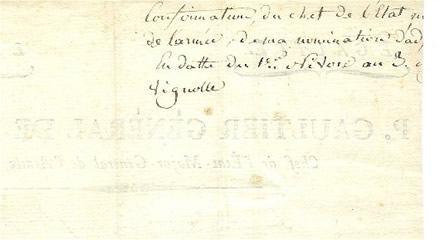 Confirmation, du chef de l'Etat m
de larmée, de ma nomination d'ad
En datte du 1er. Nivose an 3.
Vignolle
P. GAULTIER GÉNÉRAL DE
Chef de l'Etat-Major-Général de l'Armée